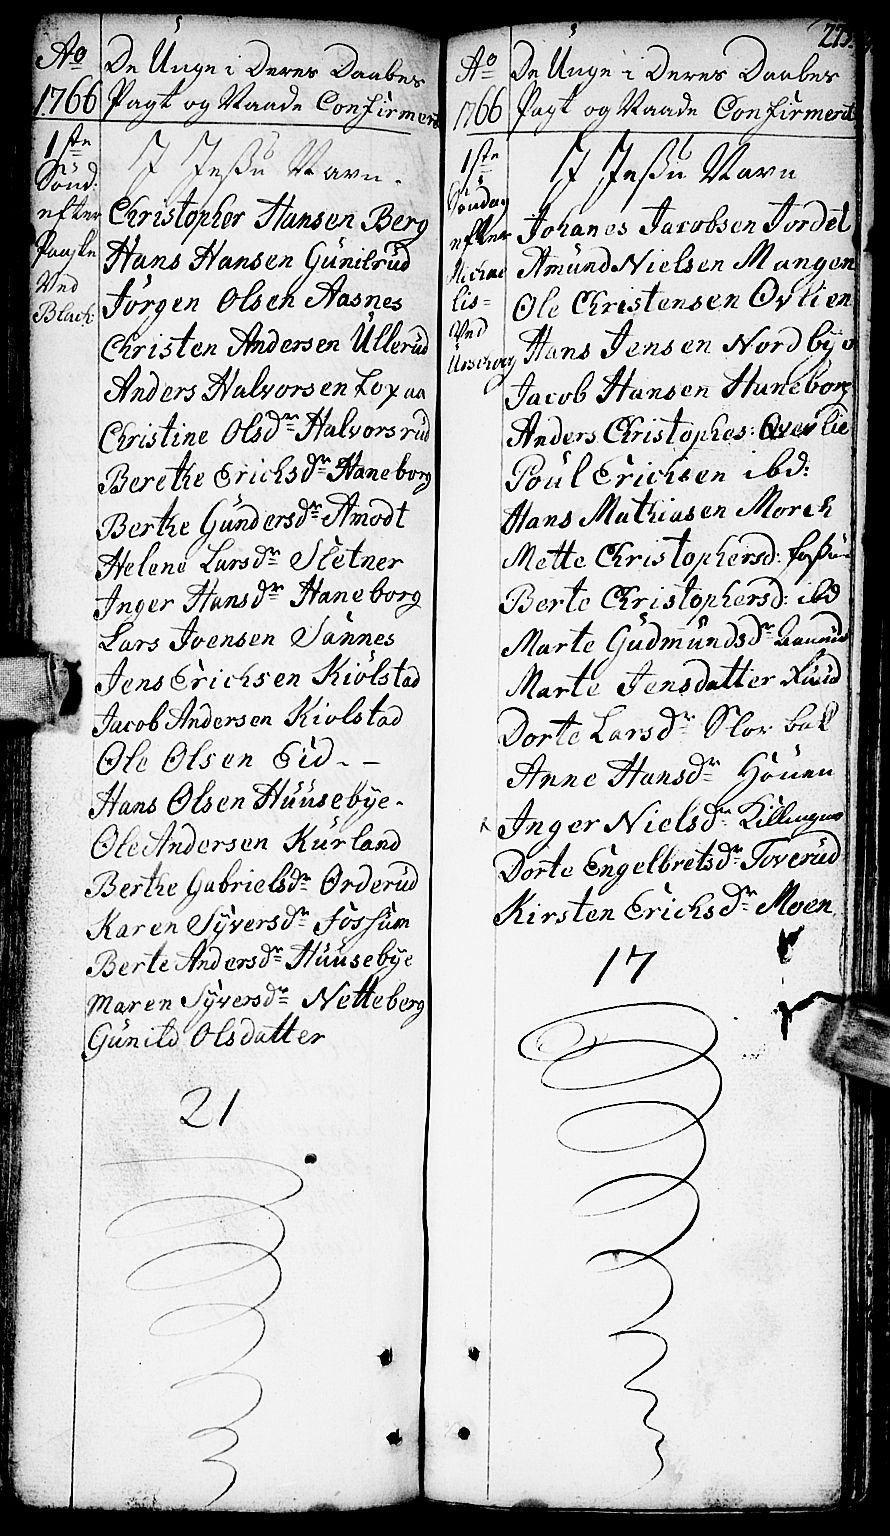 Ao 1766
De Unge i Deres Daabes
Pagt og Naade Confirmert
1ste
Sönd:
efter
Paaske
Ved
Blach:
I Jeßu Navn.
Christopher Hansen Berg
Hans Hansen Gunilrud
Jörgen Olsen Aasnes
Christen Andersen Ullerud
Anders Halvorsen Loxaa
Christine Olsdr Halvorsrud
Berethe Erichsdr Haneborg
Berthe Gundersdr Amodt
Helene Larsdr Sletner
Inger Hansdr Haneborg
Lars Joensen Sannes
Jens Erichsen Kiölstad
Jacob Andersen Kiolstad
Ole Olsen Eid - -
Hans Olsen Huusebye.
Ole Andersen Kurland
Berthe Gabrielsdr Orderud
Karen Syversdr Fossum
Berte Andersdr Huusebye
Maren Syversdr Netteberg
Gunild Olsdatter
21
Ao 1766
De Unge i Deres Daabes
Pagt og Naade Confirmert
1ste
Söndag
efter
Michae
lis=
Ved
Urschoug
I Jeßu Navn
Johanes Jacobsen Jordet
Amund Nielsen Mangen
Ole Christensen Ovlien
Hans Jensen Nordbye
Jacob Hansen Haneborg
Anders Christophes: Overlie
Poul Erichsen ibd:
Hans Mathiasen Morch
Mette Christophersd:
Berte Christophersd: ibd
Marte Gudmundsdr
Marte Jensdatter
Dorte Larsdr Storbak
Anne Hansdr Höuen
Inger Nielsdr Killingmo
Dorte Engelbretsdr Toverud
Kirsten Erichsdr Moen
17